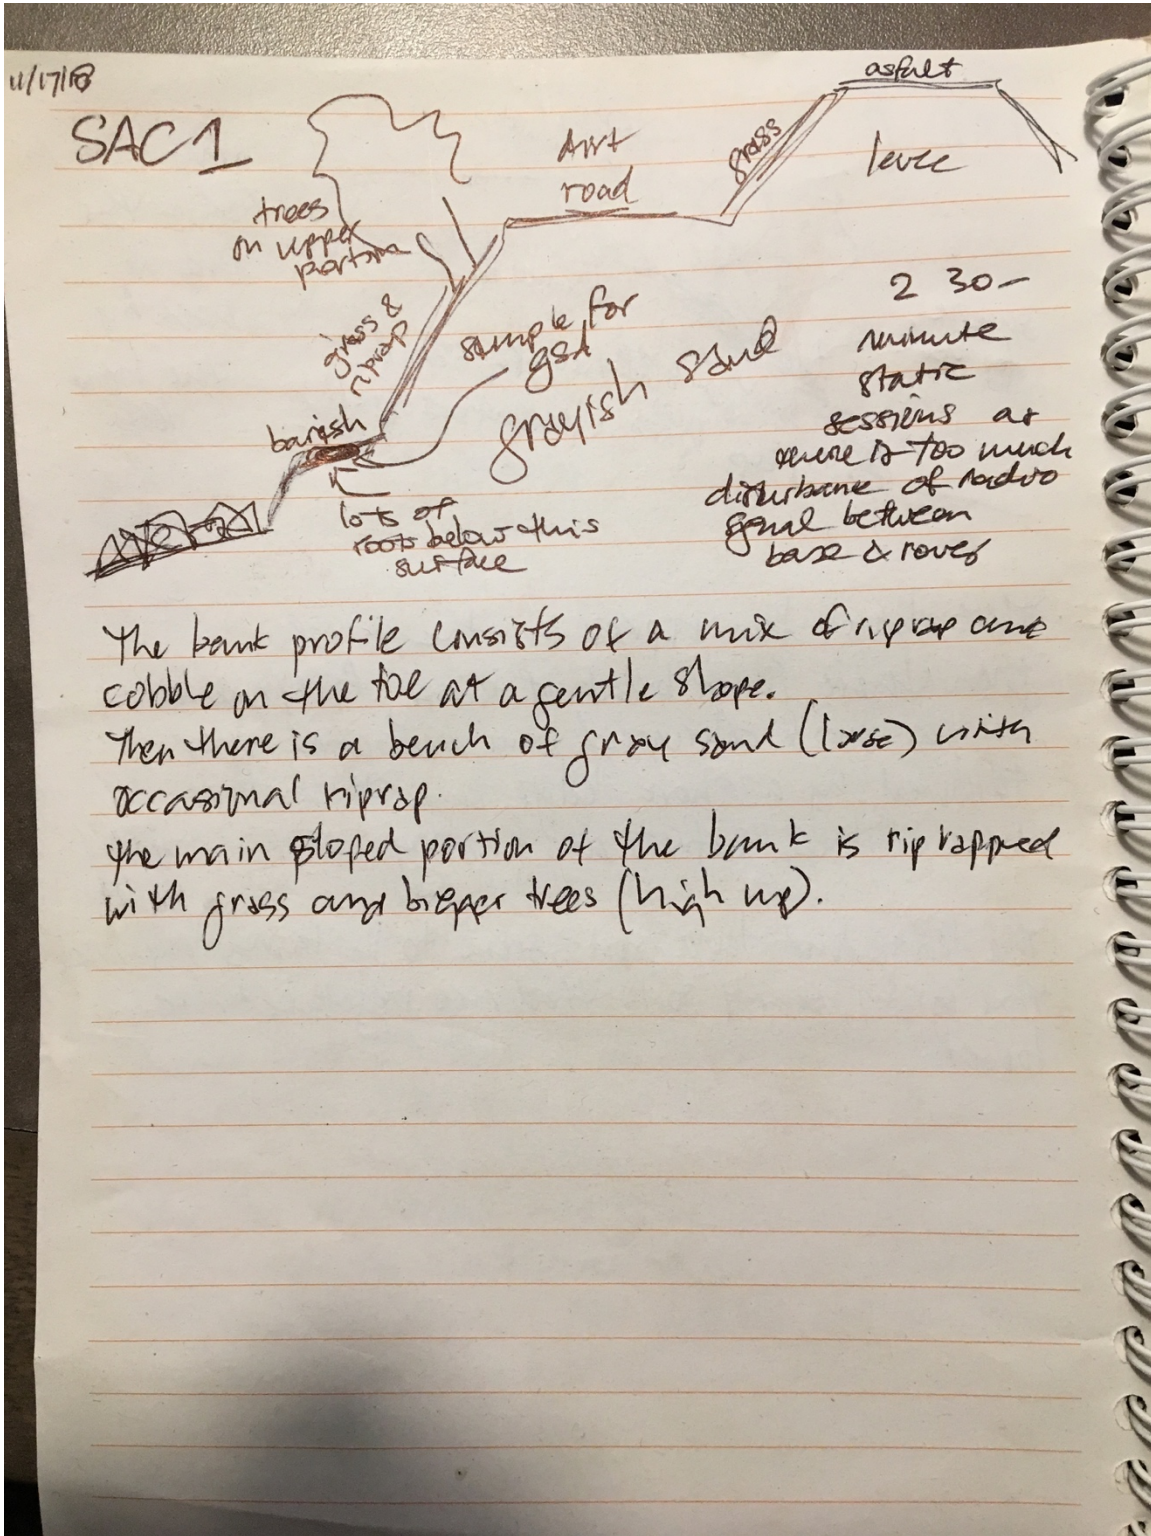 11/17/18
SAC1
asfult
dirt
road
grass
levee
trees
on upper
portion
grass &
riprap
sample for
gsd
grayish sand
barish
lots of
roots below this
surface
2 30-
minute
static
sessions as
there is too much
disturbance of radio
signal between
base & rover
The bank profile consists of a mix of riprap and
cobble on the toe at a gentle slope.
Then there is a bench of gray sand (loose) with
occasional riprap.
The main sloped portion of the bank is riprapped
with grass and bigger trees (high up).